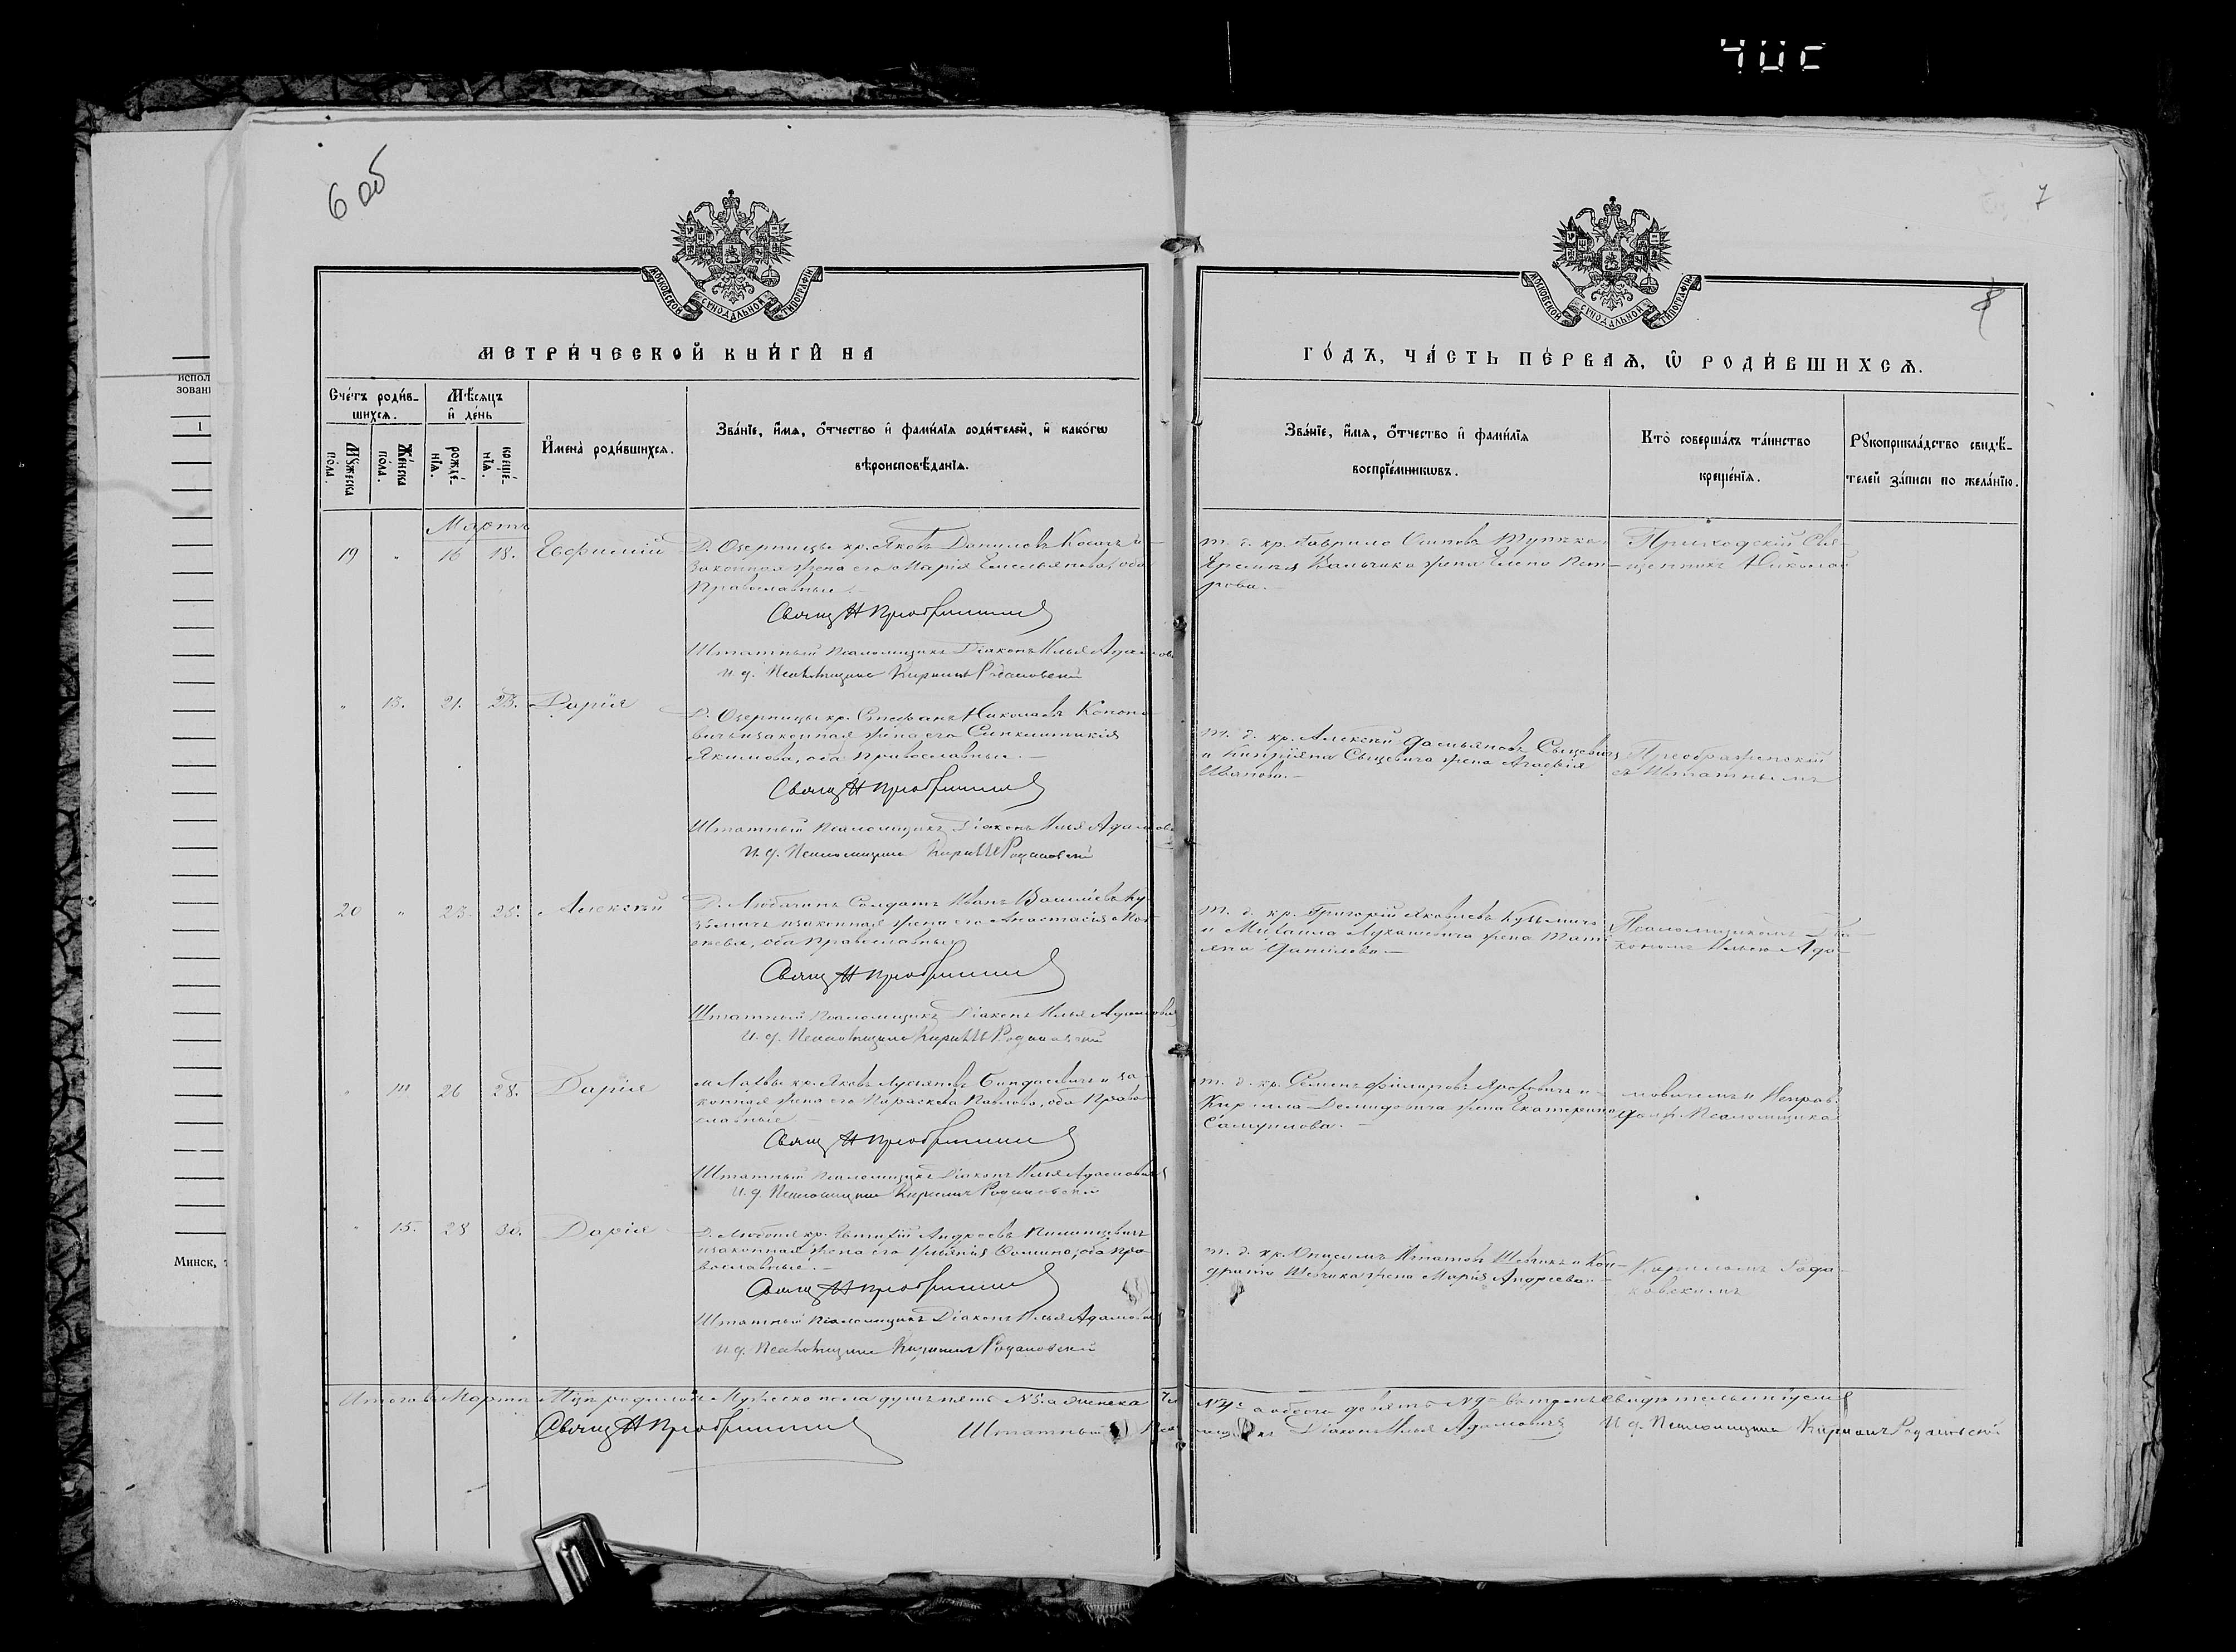 6 об
7
8
МОСКОВСКОЙ СѴНОДАЛЬНОЙ ТИПОГРАФІИ
МОСКОВСКОЙ СѴНОДАЛЬНОЙ ТИПОГРАФІИ
МЕТРИ́ЧЕСКОЙ КНИ́ГИ НА
ГО́ДЪ, ЧА́СТЬ ПЕ́РВАѦ, Ѡ РОДИ́ВШИХСѦ.
испол
зован
1
Минск,
Сче́тъ роди́в-
шихсѧ.
Мѣ́сяцъ
и де́нь
Мꙋжеска по́ла.
Же́нска по́ла.
рожде́нїѧ.
креще́нїѧ.
Имена̀ роди́вшихсѧ.
Зва́нїе, и́мѧ, о́тчество и фами́лїѧ роди́телей, и како́гѡ
вѣроисповѣ́данїѧ.
Зва́нїе, и́мѧ, о́тчество и фами́лїѧ
воспрїе́мникѡвъ.
Кто̀ соверша́лъ та́инство
креще́нїѧ.
Рꙋкоприкла́дство свидѣ́-
телей за́писи по жела́нїю.
Мартъ
19 " 16 18. Евфимій
Д. Озерницы кр. Яковъ Даниловъ Косачъ и
законная жена его Марія Емельянова, оба
Православные.
Свящ Н Преображенскій
Штатный Псаломщикъ Діаконъ Илья Адамови
И. д. Псаломщика Кириллъ Родаковскій
т. д. кр. Гаврило
жена Елена Пет-
рова.
Приходскій Свя-
щенникъ Николай
" 13. 21. 23. Дарія
Д. Озерницы кр. Стефанъ Николаевъ Конопо
вичъ и законная жена его Синклитикія
Якимова, оба Православные.
Свящ Н Преображенскій
Штатный Псаломщикъ Діаконъ Илья Адамови
И. д. Псаломщика Кирилъ Родаковскій
т. д. кр. Алексѣй Дамьяновъ Сыцевичъ
и Кипріяна Сыцевича жена Агафія
Иванова.
Преображенскій
съ Штатнымъ
20 " 23. 25. Алексѣй
Д. Любачинъ Солдатъ Иванъ Василіевъ Ку
зьмичъ и законная жена его Анастасія Мои
сѣева, оба Православные
Свящ Н Преображенскій
Штатный Псаломщикъ Діаконъ Илья Адамовичъ
И. д. Псаломщика Кириллъ Родаковскій
т. д. кр. Григорій Яковлевъ Кузьмичъ
и Михаила Лукашевича жена Тать
яна Данилова
Псаломщикомъ Діа-
кономъ Ильею Ада-
" 14. 26 28. Дарія
кр. Яковъ Бондаевичъ и за
конная жена его Параскева Павлова, оба Право-
славные
Свящ Н Преображенскій
Штатный Псаломщикъ Діаконъ Илья Адамовичъ
И. д. Псаломщика Кириллъ Родаковскій
т. д. кр. Семенъ Филиповъ и
Кирилла Демидовича жена Екатерина
Самуилова.
мовичемъ и Исправ.
долж. Псаломщика
" 15. 28 30. Дарія
кр. Андреевъ
и законная жена его Ульянія Фомина, оба Пра-
вославные.
Свящ Н Преображенскій
Штатный Псаломщикъ Діаконъ Илья Адамовичъ
И. д. Псаломщика Кириллъ Родаковскій
т. д. кр. Онисимъ Игнатовъ Шевчикъ и Кон-
драта Шевчика жена Марія Андреева.
Кирилломъ Рода-
ковскимъ
Итого въ Мартѣ М-цѣ родилось Мужеска пола душъ пять №5. а женска №4. а обоего девять №9 въ томъ свидѣтельствуемъ
Свящ Н Преображенскій Штатный Псаломщикъ Діаконъ Илья Адамовичъ И. д. Псаломщика Кириллъ Родаковскій